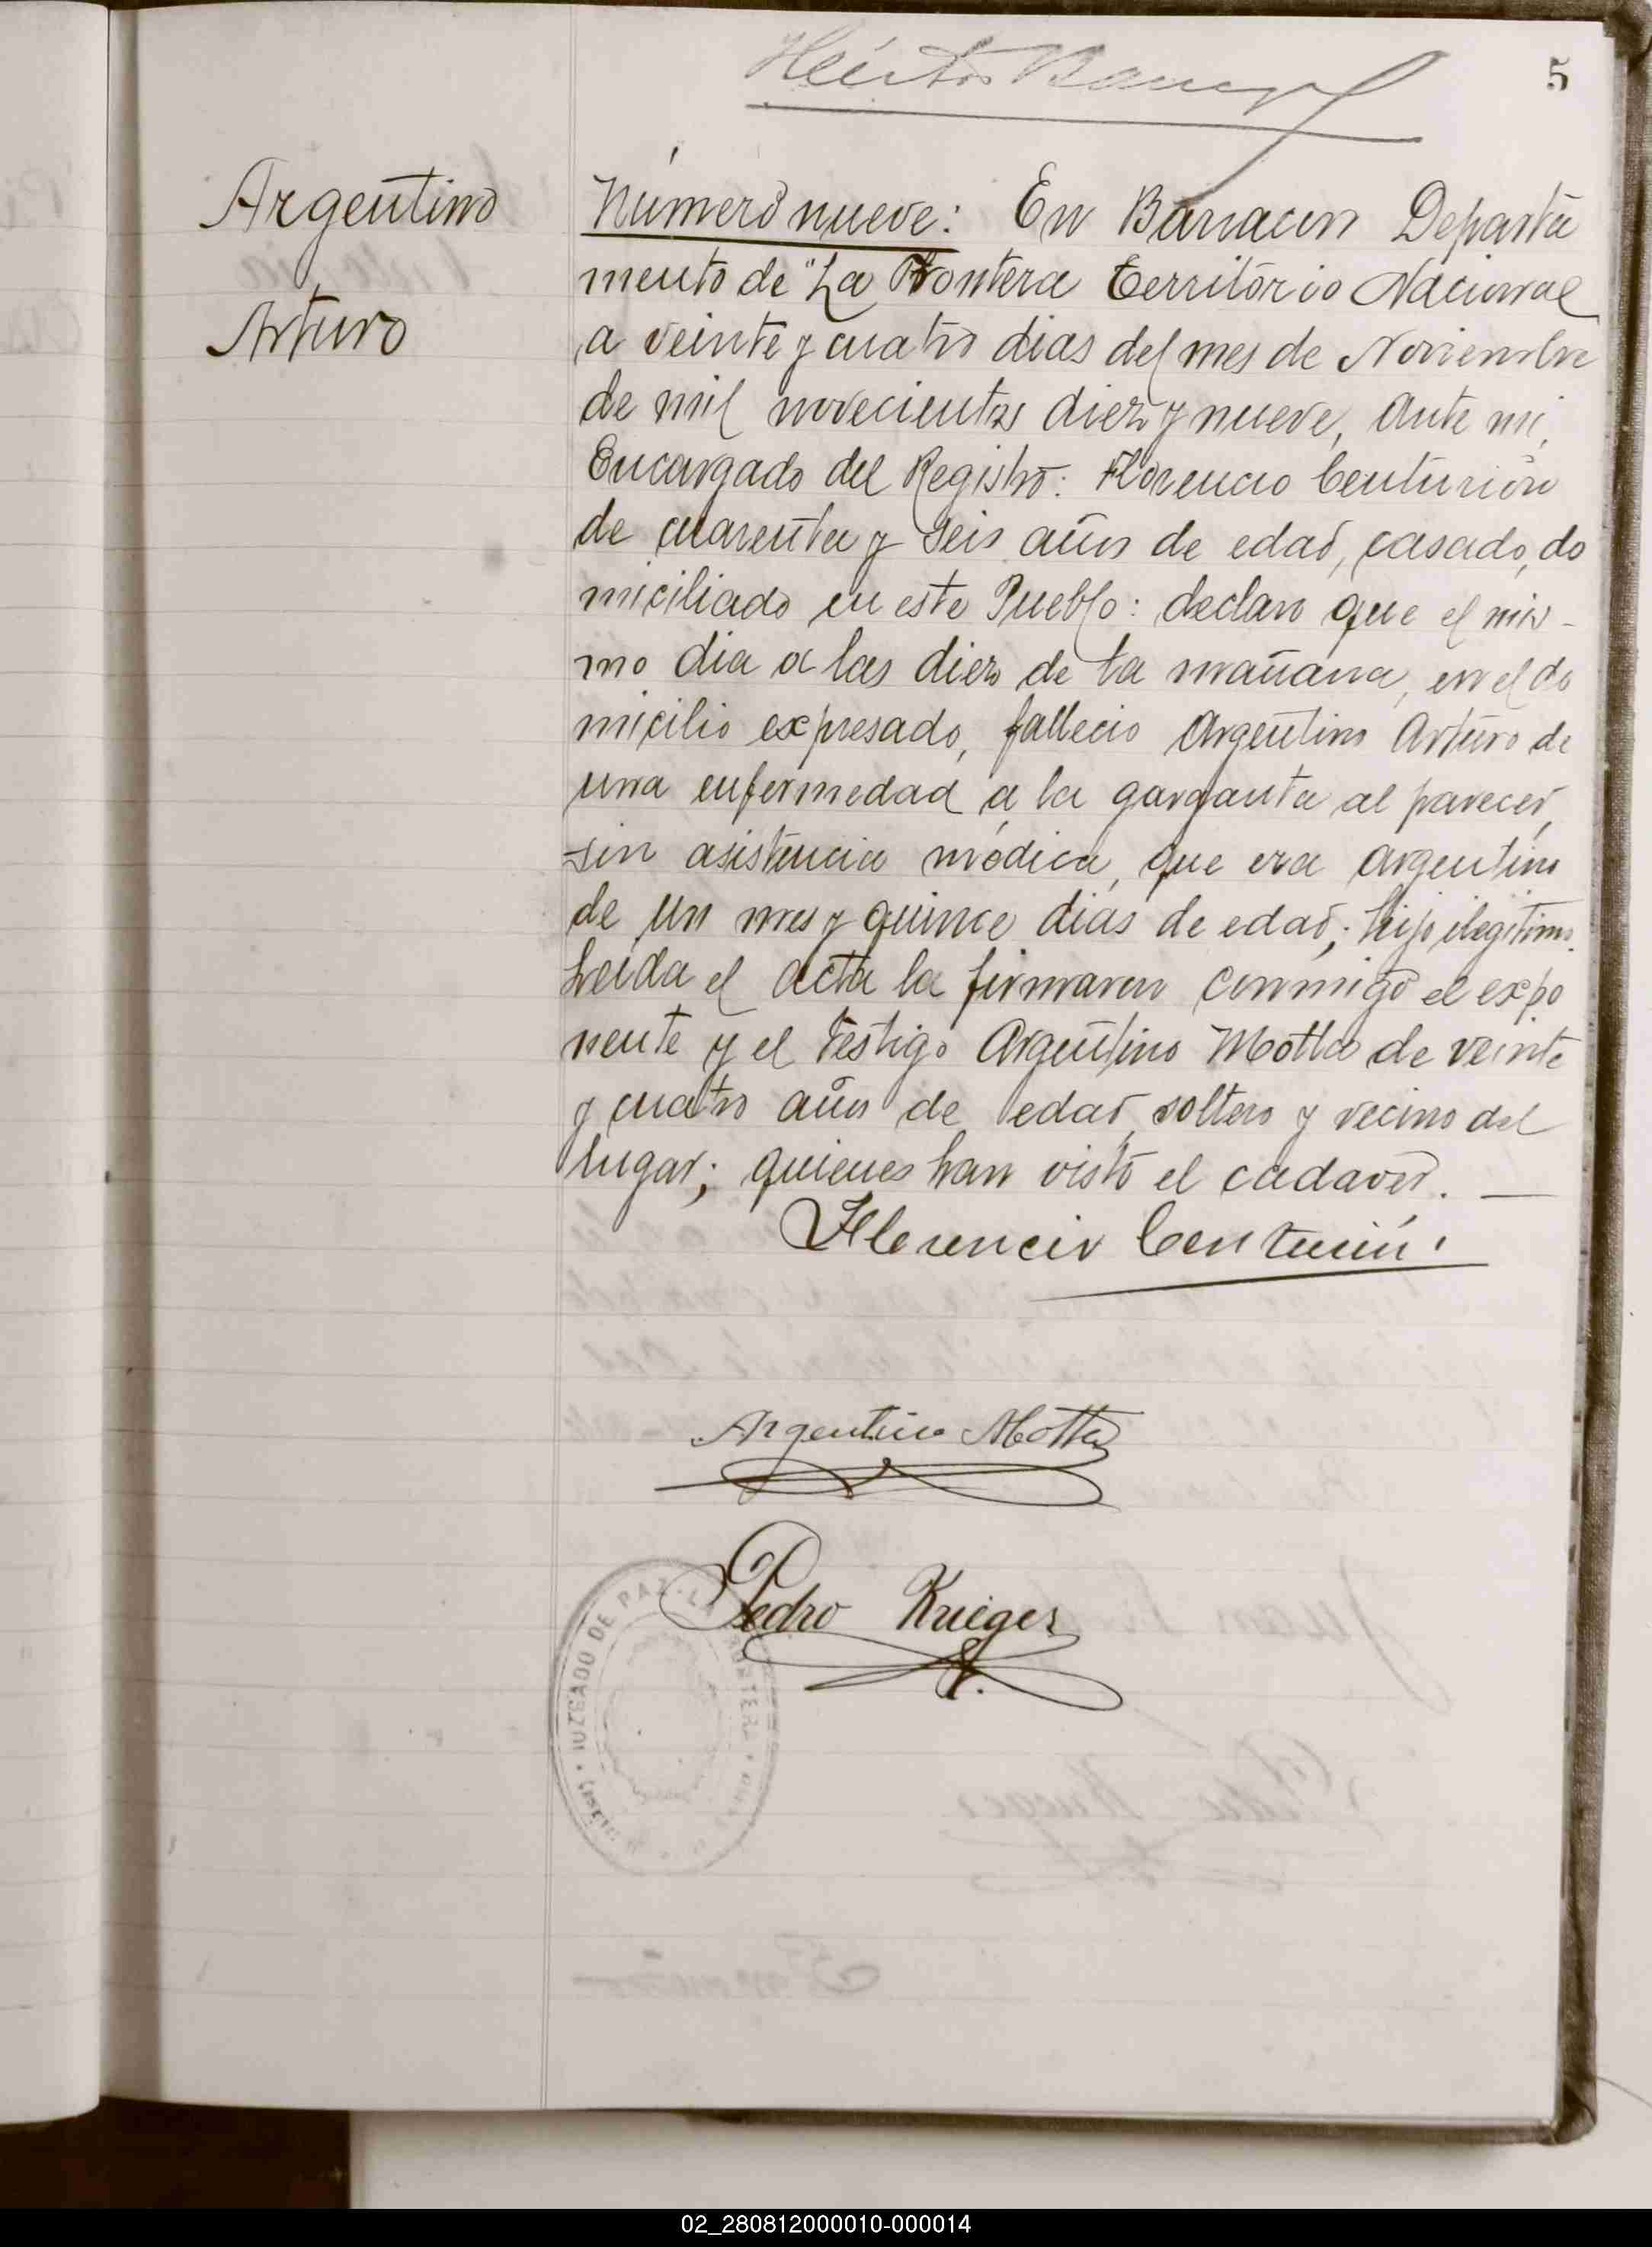 5
Argentino
Arturo
Número nueve: En Barracon Departa
mento de "La Frontera Territorio Nacional
a veinte y cuatro dias del mes de Noviembre
de mil novecientos diez y nueve, ante mi,
Encargado del Registro: Florencio Centurión
de cuarenta y seis años de edad, casado, do
miciliado en este Pueblo: declaro que el mis-
mo dia a las diez de la mañana, en el do
micilio expresado, fallecio Argentino Arturo de
una enfermedad a la garganta al parecer,
sin asistencia médica, que era argentino
de un mes y quince dias de edad; hijo ilegitimo.
Leida el acta la firmaron conmigo el expo
nente y el testigo Argentino Motta de veinte
y cuatro años de edad, soltero y vecino del
lugar; quienes han visto el cadaver. —
Florencio Centurión
Argentino Motta
Pedro Krieger
JUZGADO DE PAZ
02_280812000010-000014